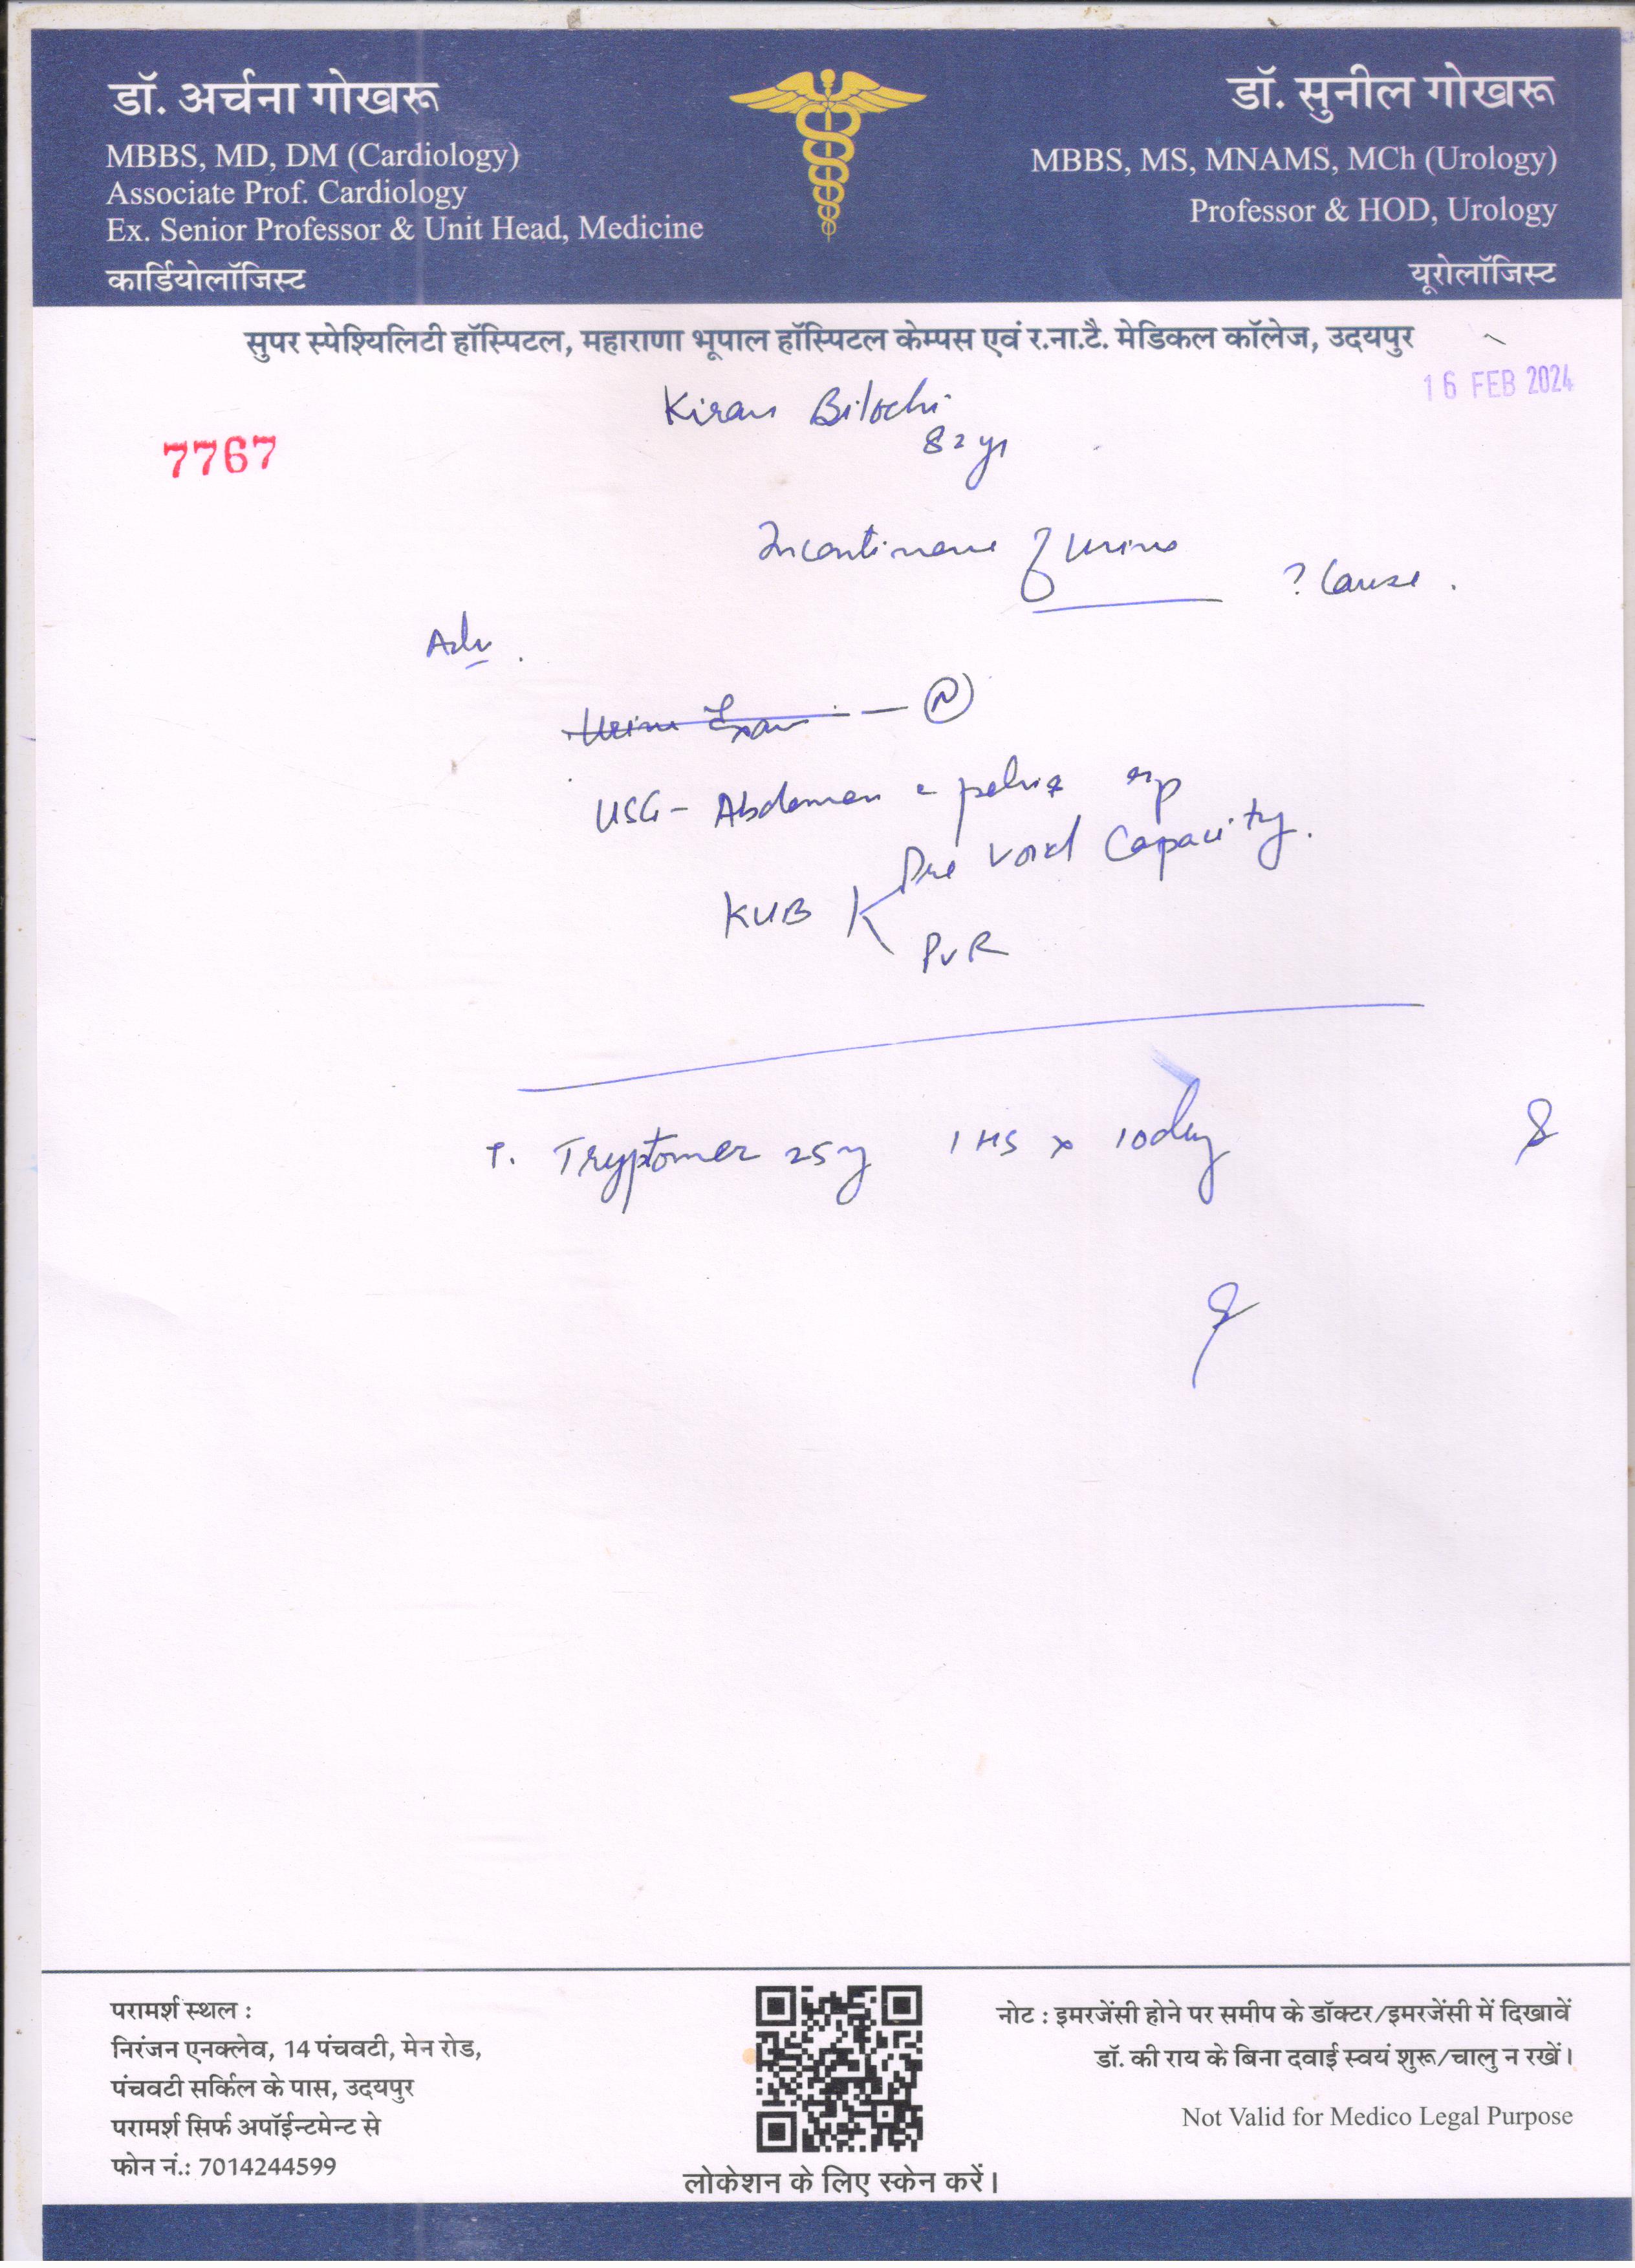 डॉ. अर्चना गोखरू
MBBS, MD, DM (Cardiology)
Associate Prof. Cardiology
Ex. Senior Professor & Unit Head, Medicine
कार्डियोलॉजिस्ट
डॉ. सुनील गोखरू
MBBS, MS, MNAMS, MCh (Urology)
Professor & HOD, Urology
यूरोलॉजिस्ट
सुपर स्पेश्यिलिटी हॉस्पिटल, महाराणा भूपाल हॉस्पिटल केम्पस एवं र.ना.टै. मेडिकल कॉलेज, उदयपुर
16 FEB 2024
Kiran Bilochi
7767
82 yr
Incontinence of urine
? Cause.
Adv.
Urine Exam — N
USG - Abdomen & pelvis
Pre Void Capacity.
KUB
PVR
T. Tryptomer 25mg 1 HS x 10day
परामर्श स्थल :
निरंजन एनक्लेव, 14 पंचवटी, मेन रोड,
पंचवटी सर्किल के पास, उदयपुर
परामर्श सिर्फ अपॉईन्टमेन्ट से
फोन नं.: 7014244599
लोकेशन के लिए स्केन करें।
नोट : इमरजेंसी होने पर समीप के डॉक्टर/इमरजेंसी में दिखावें
डॉ. की राय के बिना दवाई स्वयं शुरू/चालु न रखें।
Not Valid for Medico Legal Purpose